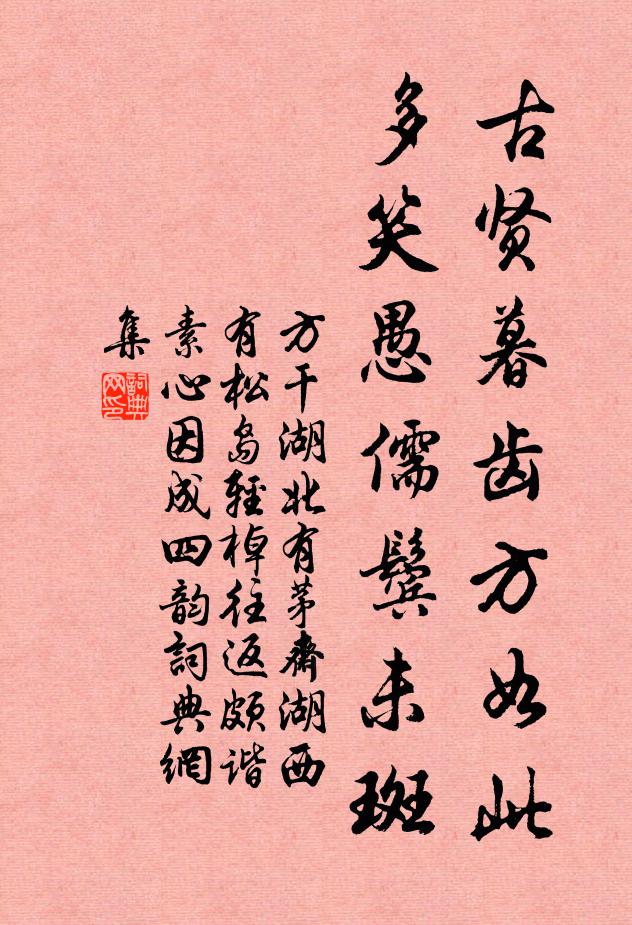 古贤暮齿方如此
多笑愚儒鬓未斑
方干湖北有茅齋湖西
有松岛轻棹往返颇谐
素心因成四韵詞典網
集
詞典
网印